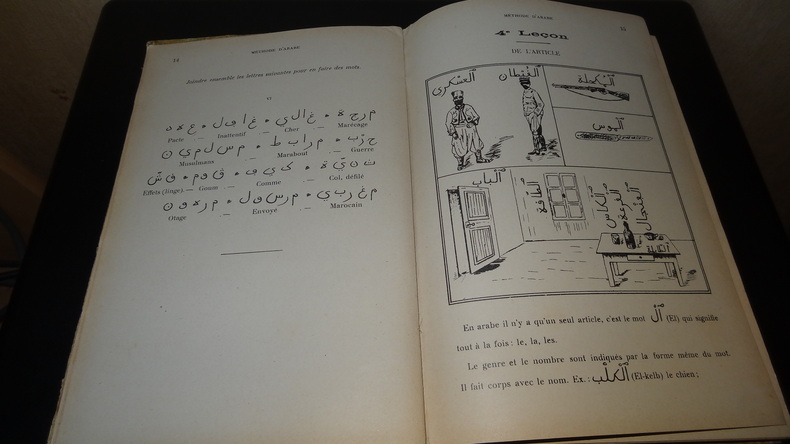 14
MÉTHODE D'ARABE
Joindre ensemble les lettres suivantes pour en faire des mots.
م ر ج ة • غ ا ل ي • غ ا ف ل • ع ه د
Pacte — Inattentif — Cher — Marécage
ح ر ب • م ر ا ب ط • م س ل م ي ن
Musulmans — Marabout — Guerre
ث ن ي ة • ك ي ف • ق و م • ق ش
Effets (linge). — Goum — Comme — Col, défilé
م غ ر ب ي • م ر س و ل • م ر ه و ن
Otage — Envoyé — Marocain
MÉTHODE D'ARABE
4e Leçon
DE L'ARTICLE
ألعسكري
ألڧبطان
ألمكحلة
ألموس
ألباب
ألطاڧة
ألكاس
ألڧرعة
ألڢنجال
ألطابلة
En arabe il n'y a qu'un seul article, c'est le mot ألْ (El) qui signifie
tout à la fois : le, la, les.
Le genre et le nombre sont indiqués par la forme même du mot.
Il fait corps avec le nom. Ex. : ألْكَلْب (El-kelb) le chien ;